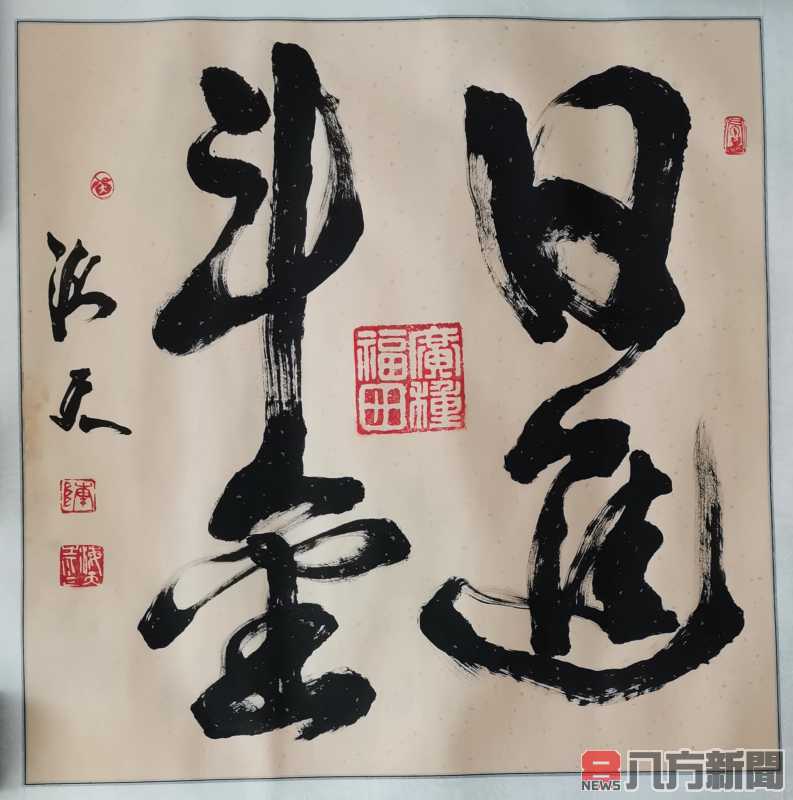 日進
斗金
海天
廣種
福田
陳
八方新聞
NEWS